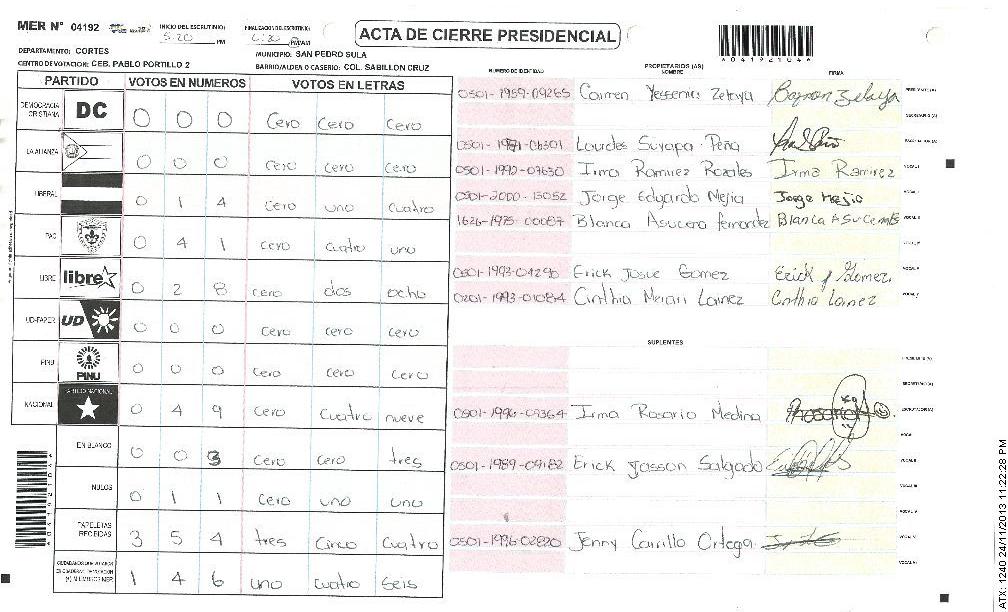 MER Nº 04192 INICIO DEL ESCRUTINIO: 5:20 PM FINALIZACION DEL ESCRUTINIO: 6:30 PM/AM
ACTA DE CIERRE PRESIDENCIAL
DEPARTAMENTO: CORTES MUNICIPIO: SAN PEDRO SULA
CENTRO DE VOTACION: CEB. PABLO PORTILLO 2 BARRIO/ALDEA O CASERIO: COL. SABILLON CRUZ
PARTIDO VOTOS EN NUMEROS VOTOS EN LETRAS
DEMOCRACIA CRISTIANA DC 0 0 0 Cero Cero Cero
LA ALIANZA 0 0 0 cero cero cero
LIBERAL 0 1 4 cero uno cuatro
PAC 0 4 1 cero cuatro uno
LIBRE libre 0 2 8 cero dos ocho
UD-FAPER UD 0 0 0 cero cero cero
PINU PINU 0 0 0 cero cero cero
NACIONAL PARTIDO NACIONAL 0 4 9 cero cuatro nueve
EN BLANCO 0 0 3 cero cero tres
NULOS 0 1 1 cero uno uno
PAPELETAS RECIBIDAS 3 5 4 tres cinco cuatro
1 4 6 uno cuatro seis
NUMERO DE IDENTIDAD PROPIETARIOS (AS) NOMBRE FIRMA
04192104
0501-1959-09265 Carmen Yessenia Zelaya
0501-1971-06301 Lourdes Suyapa Peña
0501-1992-07630 Irma Ramirez Rozales Irma Ramirez
0501-2000-13052 Jorge Edgardo Mejia Jorge Mejia
1626-1975-00087 Blanca Asucena fernandez
Erick Josue Gomez Erick J Gomez
0201-1993-01084 Cinthia Lainez
SUPLENTES
0501-1996-09364 Irma Rosario Medina
0501-1989-09182 Erick Jasson Salgado
0501-1996-02820 Jenny Carrillo Ortega
ATX: 1240 24/11/2013 11:22:28 PM